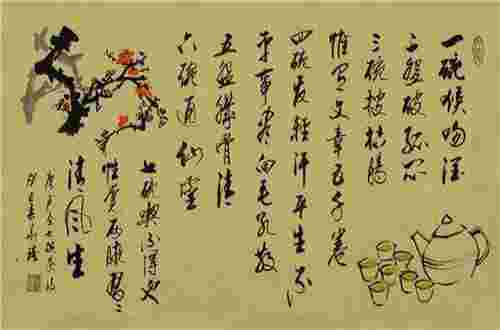 一碗喉吻润
二碗破孤闷
三碗搜枯肠
惟有文章五千卷
四碗发轻汗平生不
平事尽向毛孔散
五碗肌骨清
六碗通仙灵
七碗吃不得也
惟觉两腋习习
清风生